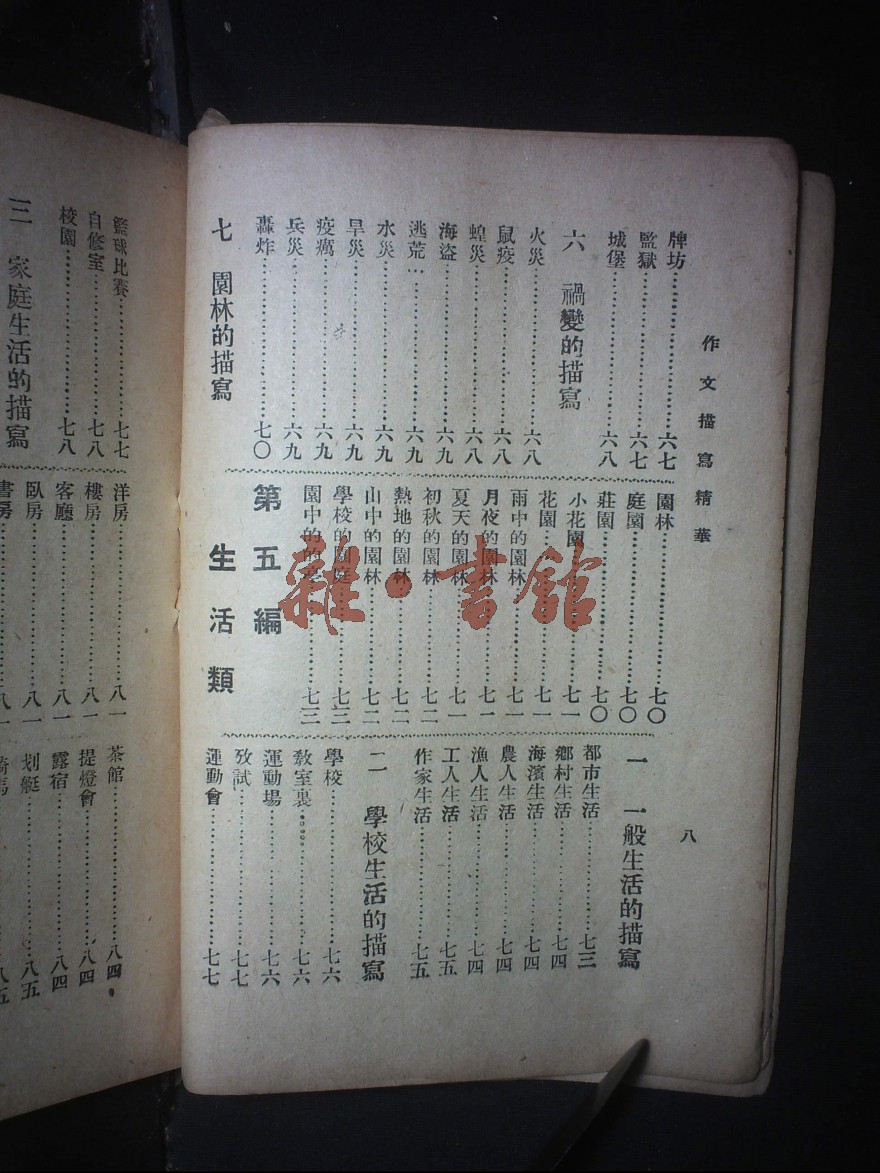 作文描寫精華
八
牌坊……六七
監獄……六七
城堡……六八
六 禍變的描寫
火災……六八
鼠疫……六八
蝗災……六八
海盜……六九
逃荒……六九
水災……六九
旱災……六九
疫癘……六九
兵災……六九
轟炸……七〇
七 園林的描寫
園林……七〇
庭園……七〇
莊園……七〇
小花園……七一
花園……七一
雨中的園林……七一
月夜的園林……七一
夏天的園林……七一
初秋的園林……七二
熱地的園林……七二
山中的園林……七二
學校的園庭……七三
園中的……七三
第五編 生活類
一 一般生活的描寫
都市生活……七三
鄉村生活……七四
海濱生活……七四
農人生活……七四
漁人生活……七四
工人生活……七五
作家生活……七五
二 學校生活的描寫
學校……七六
教室裏……七六
運動場……七六
攷試……七七
運動會……七七
籃球比賽……七七
自修室……七八
校園……七八
三 家庭生活的描寫
洋房……八一
樓房……八一
客廳……八一
臥房……八一
書房……八一
茶館……八四
提燈會……八四
露宿……八四
划艇……八五
騎馬……八五
雜·書館